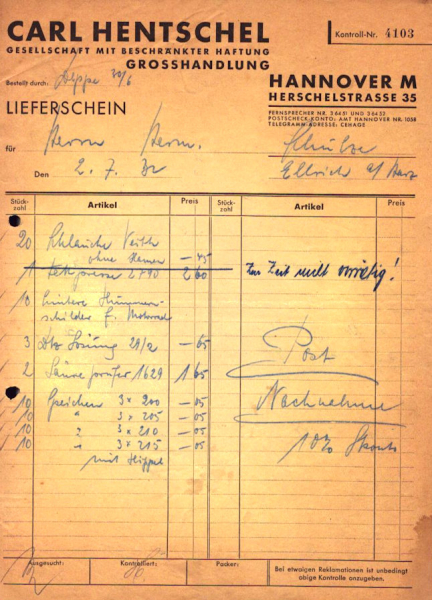 CARL HENTSCHEL
GESELLSCHAFT MIT BESCHRÄNKTER HAFTUNG
GROSSHANDLUNG
Kontroll-Nr. 4103
Bestellt durch: 30/6
HANNOVER M
HERSCHELSTRASSE 35
FERNSPRECHER NR. 36451 UND 36452
POSTSCHECK-KONTO: AMT HANNOVER NR. 1058
TELEGRAMM-ADRESSE: CEHAGE
LIEFERSCHEIN
für Herrn Herm. Schulze
Den 2. 7. 32 Ellrich a/Harz
Stückzahl Artikel Preis Stückzahl Artikel Preis
20 Schläuche
ohne Namen — 45
1 2790 2 60 Zur Zeit nicht vorrätig!
10 hintere Nummern-
schilder f. Motorrad
3 Dtz Lösung 29/2 — 65
2 Säureprüfer 1629 1 65
10 Speichen 3 x 200 — 05
10 " 3 x 205 — 05
10 " 3 x 210 — 05
10 " 3 x 215 — 05
mit Nippel
Post
Nachnahme
10% Skonto
Ausgesucht: Kontrolliert: Packer:
Bei etwaigen Reklamationen ist unbedingt
obige Kontrolle anzugeben.